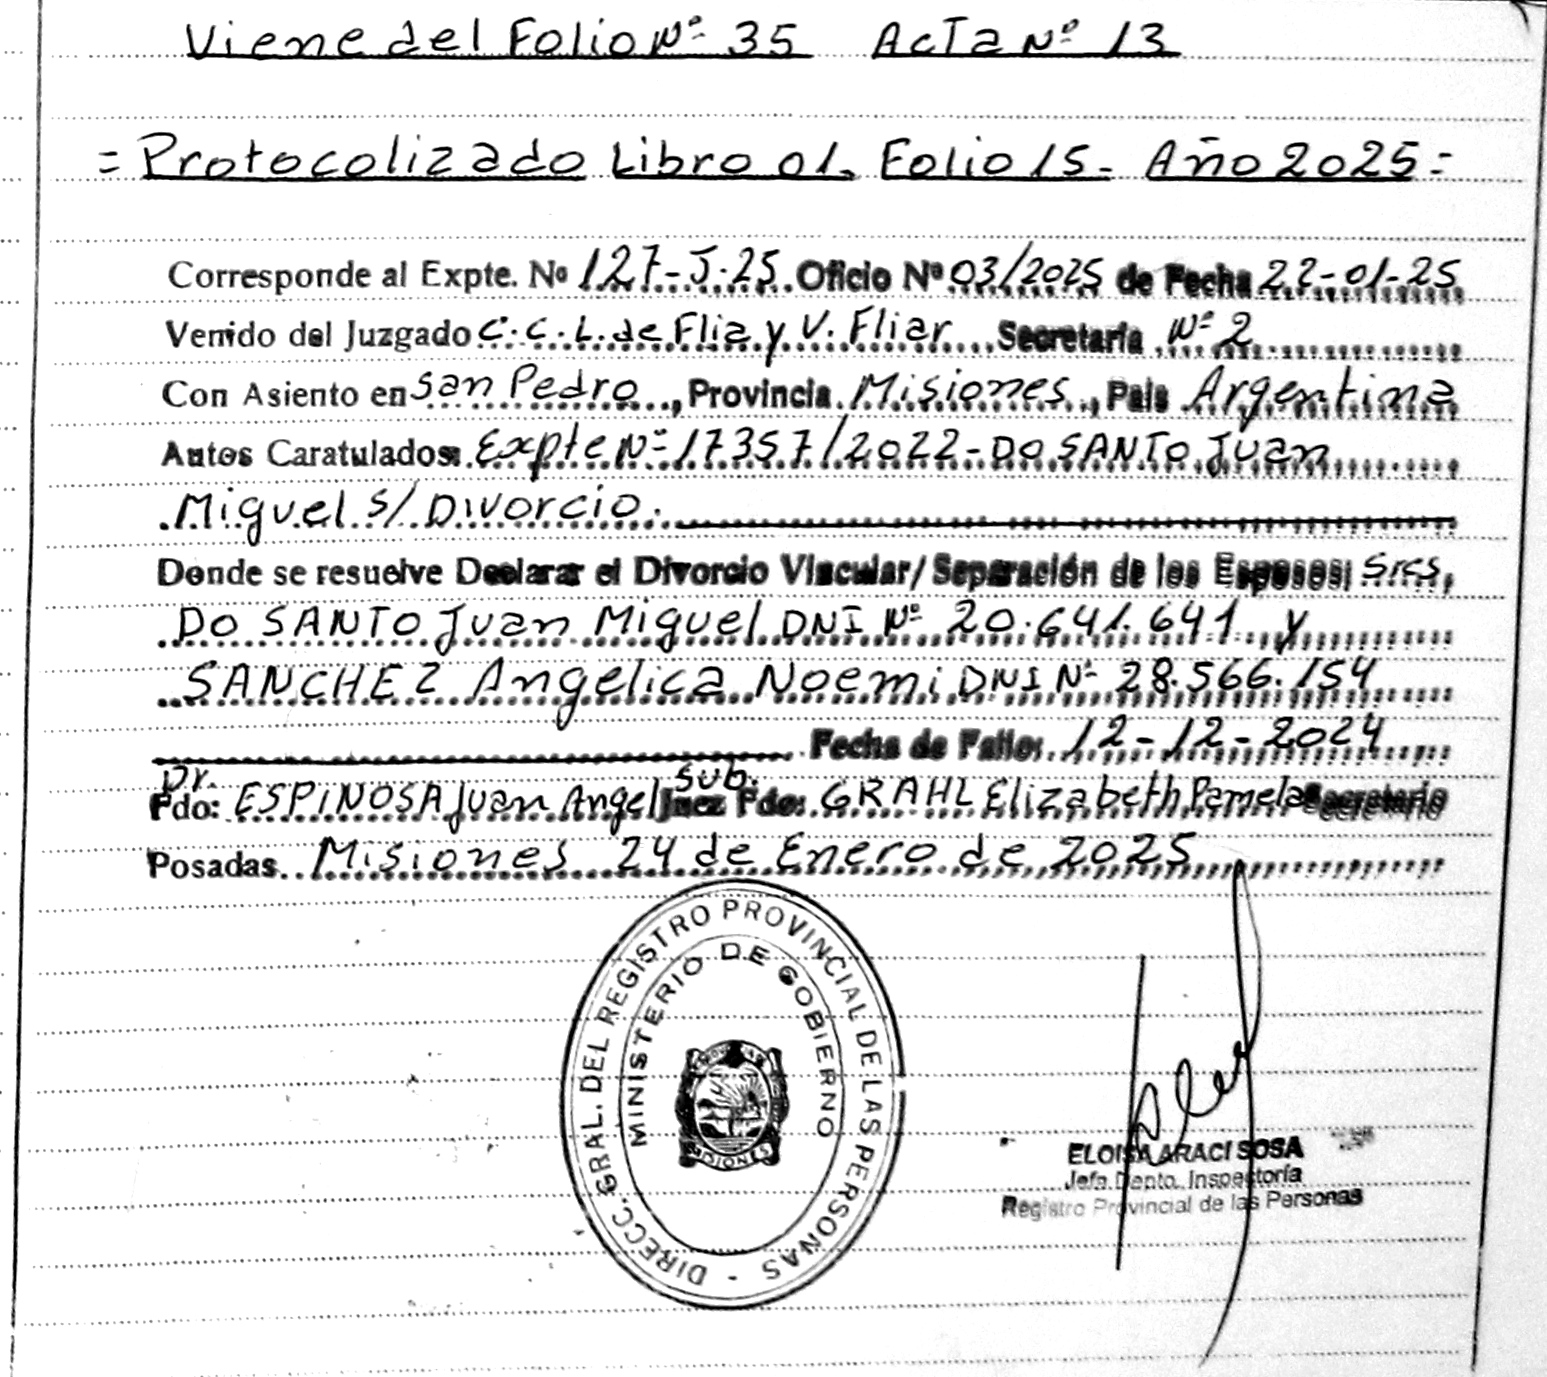 Viene del Folio Nº 35 Acta Nº 13
= Protocolizado Libro 01. Folio 15- Año 2025=
Corresponde al Expte. Nº 127-J-25 Oficio Nº 03/2025 de Fecha 22-01-25
Venido del Juzgado C.C.L. de Flia y V. Fliar Secretaría Nº 2
Con Asiento en San Pedro, Provincia Misiones, País Argentina
Autos Caratulados: Expte Nº 17357/2022-DO SANTO Juan
Miguel s/ Divorcio.
Donde se resuelve Declarar el Divorcio Vincular/Separación de los Esposos: Sres,
DO SANTO Juan Miguel DNI Nº 20.641.641 y
SANCHEZ Angelica Noemi DNI Nº 28.566.154
Fecha de Fallo: 12-12-2024
Dr. Sub.
Fdo: ESPINOSA Juan Angel Juez Fdo: GRAHL Elizabeth Pamela Secretario
Posadas. Misiones 24 de Enero de 2025
DIRECC. GRAL. DEL REGISTRO PROVINCIAL DE LAS PERSONAS -
MINISTERIO DE GOBIERNO
MISIONES
ELOISA ARACI SOSA
Jefa Depto. Inspectoría
Registro Provincial de las Personas